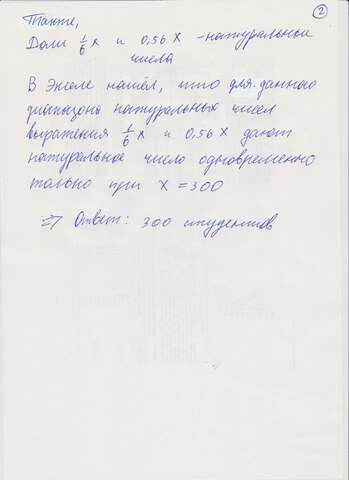 2
Также,
Доли 1/6 x и 0,56 x - натуральные
числа
В Экселе нашёл, что для данного
диапазона натуральных чисел
выражения 1/6 x и 0.56 x дают
натуральное число одновременно
только при x = 300
⇒ Ответ: 300 студентов